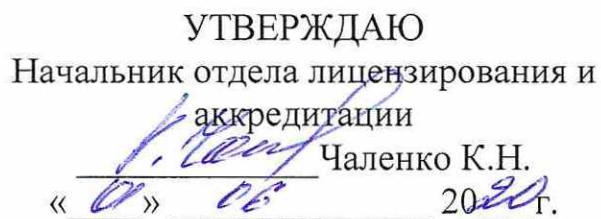 УТВЕРЖДАЮ
Начальник отдела лицензирования и
аккредитации
Чаленко К.Н.
« 01 » 06 2020г.